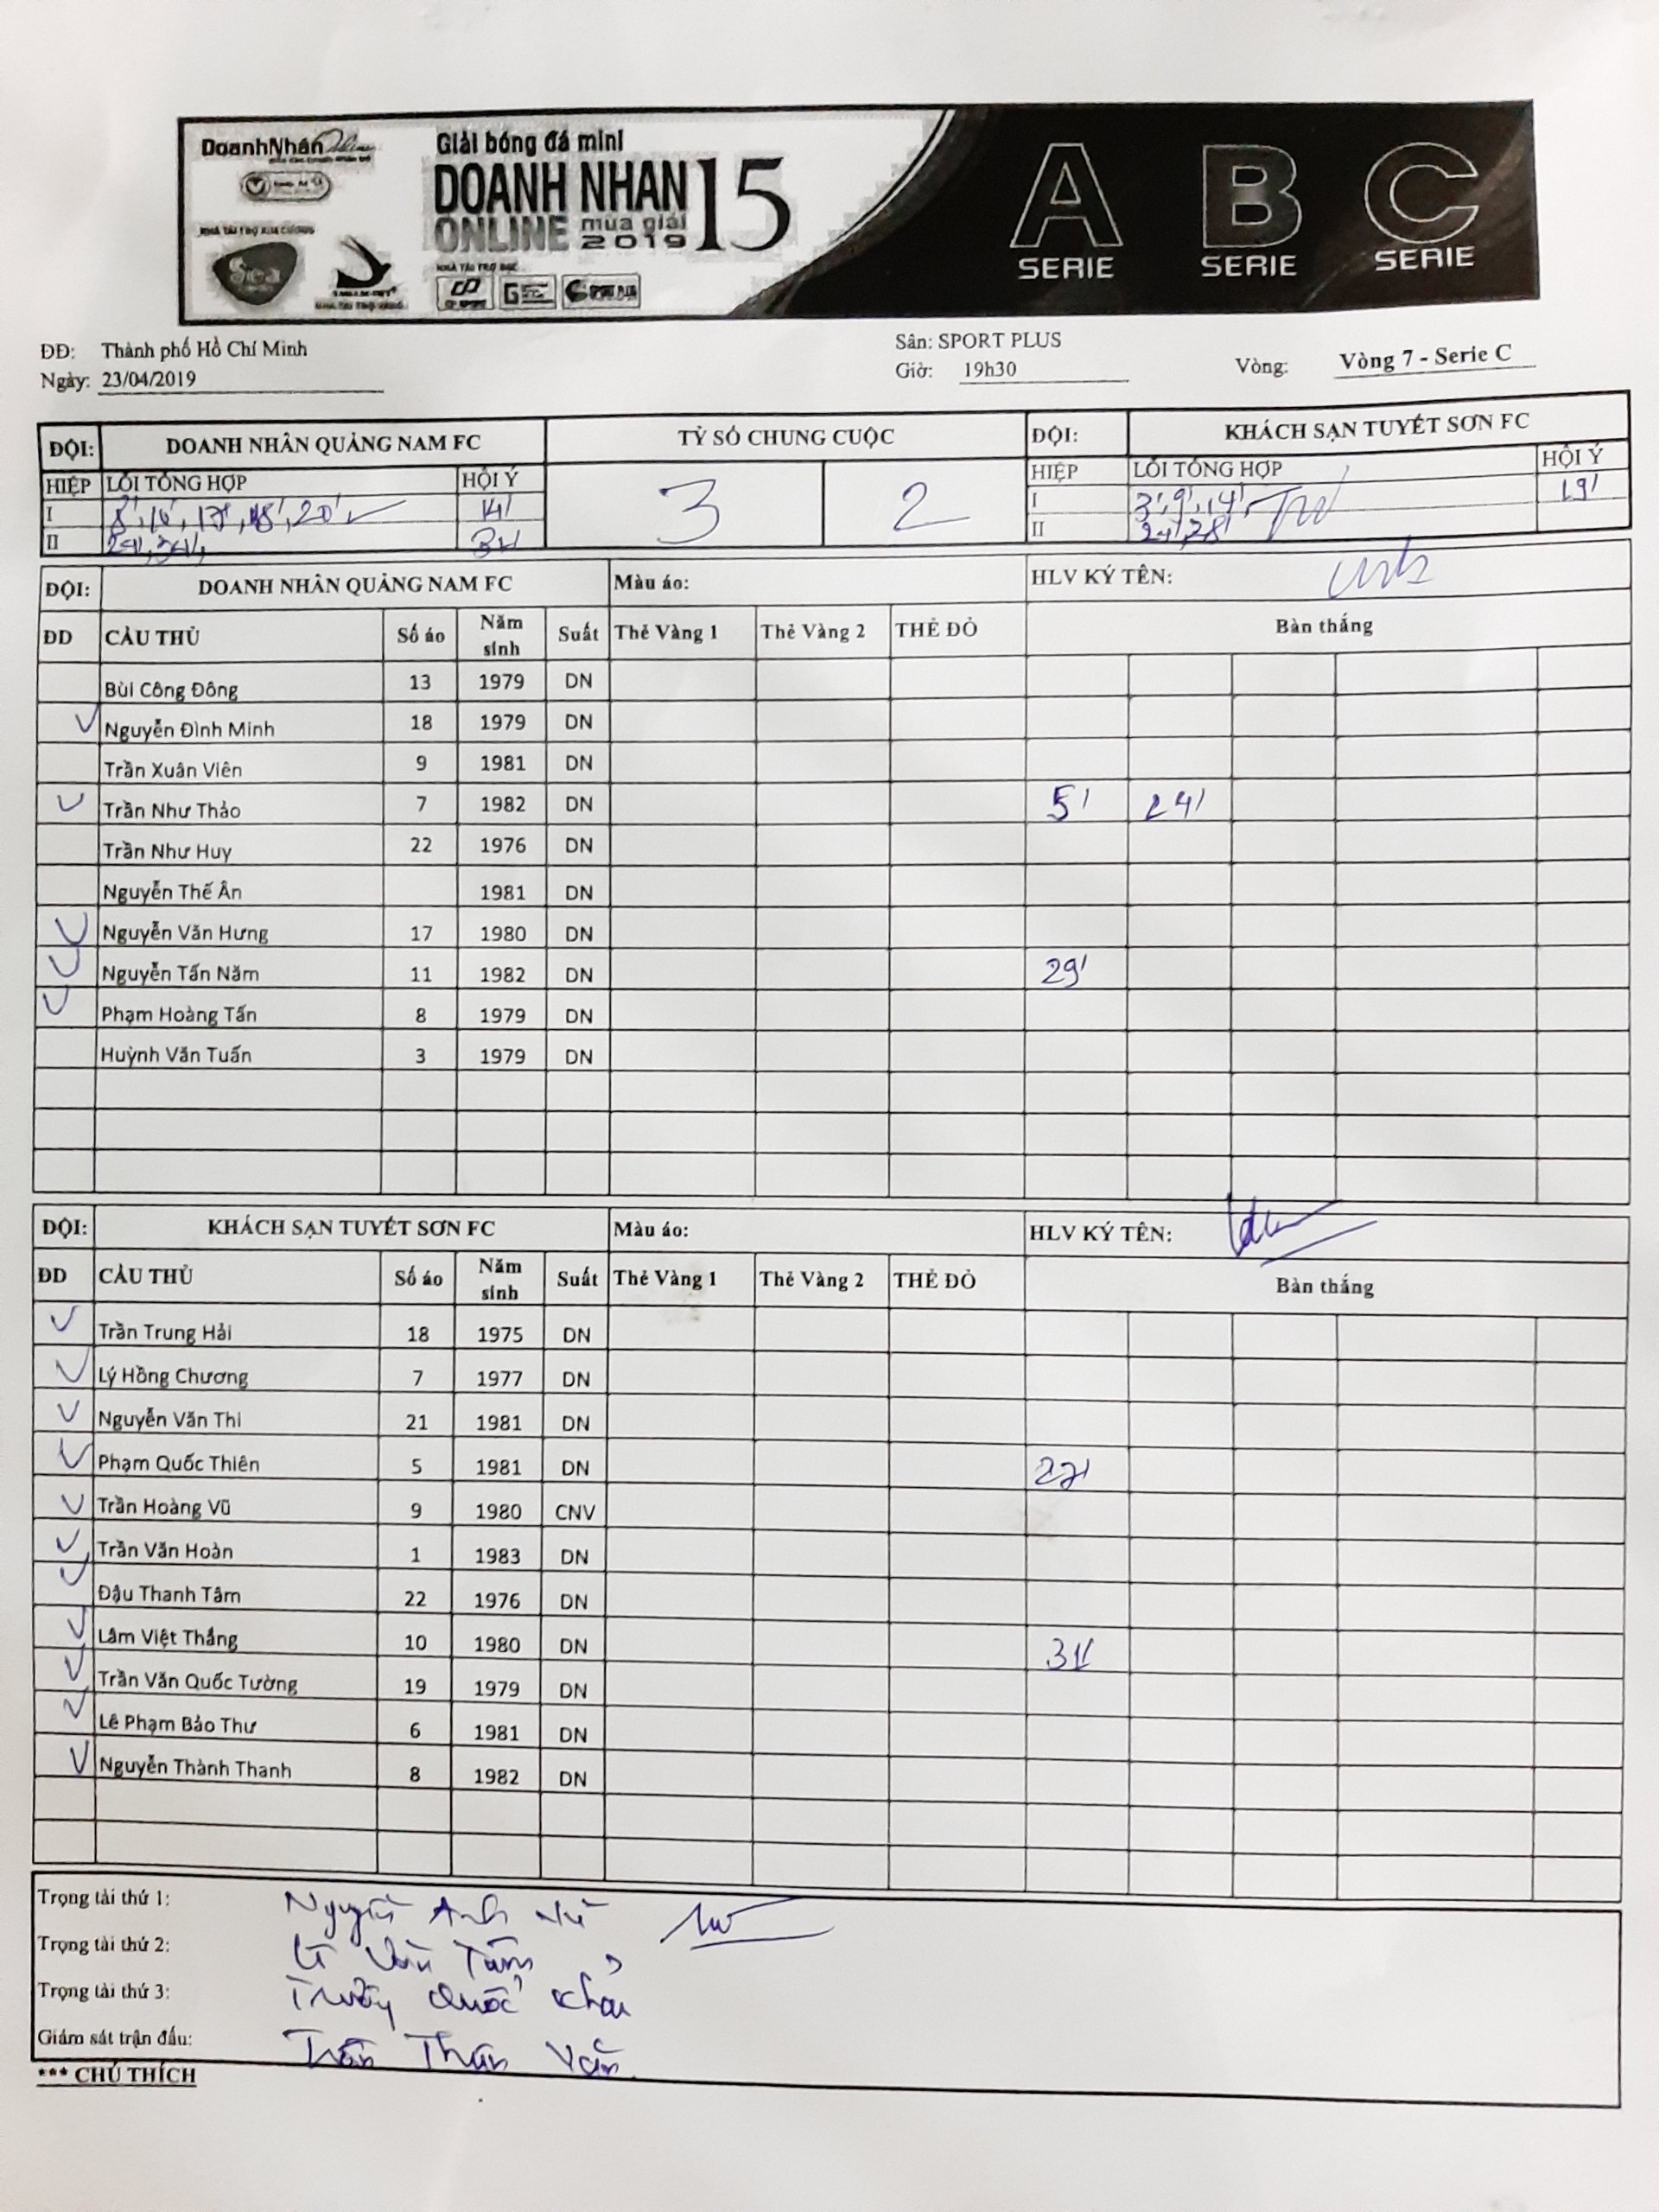 DoanhNhân Online
Giải bóng đá mini
DOANH NHAN 15
ONLINE mùa giải
2019
NHÀ TÀI TRỢ KIM CƯƠNG
NHÀ TÀI TRỢ BẠC
SPORT PLUS
A B C
SERIE SERIE SERIE
ĐĐ: Thành phố Hồ Chí Minh Sân: SPORT PLUS
Ngày: 23/04/2019 Giờ: 19h30 Vòng: Vòng 7 - Serie C
ĐỘI: DOANH NHÂN QUẢNG NAM FC TỶ SỐ CHUNG CUỘC ĐỘI: KHÁCH SẠN TUYẾT SƠN FC
HIỆP LỖI TỔNG HỢP HỘI Ý 3 2 HIỆP LỖI TỔNG HỢP HỘI Ý
I 8', 16', 17', 18', 20' 14' I 3', 9', 14' 19'
II II 24', 28'
ĐỘI: DOANH NHÂN QUẢNG NAM FC Màu áo: HLV KÝ TÊN:
ĐD CẦU THỦ Số áo Năm sinh Suất Thẻ Vàng 1 Thẻ Vàng 2 THẺ ĐỎ Bàn thắng
Bùi Công Đông 13 1979 DN
Nguyễn Đình Minh 18 1979 DN
Trần Xuân Viên 9 1981 DN
Trần Như Thảo 7 1982 DN 5' 24'
Trần Như Huy 22 1976 DN
Nguyễn Thế Ân 1981 DN
Nguyễn Văn Hưng 17 1980 DN
Nguyễn Tấn Năm 11 1982 DN 29'
Phạm Hoàng Tấn 8 1979 DN
Huỳnh Văn Tuấn 3 1979 DN
ĐỘI: KHÁCH SẠN TUYẾT SƠN FC Màu áo: HLV KÝ TÊN:
ĐD CẦU THỦ Số áo Năm sinh Suất Thẻ Vàng 1 Thẻ Vàng 2 THẺ ĐỎ Bàn thắng
Trần Trung Hải 18 1975 DN
Lý Hồng Chương 7 1977 DN
Nguyễn Văn Thi 21 1981 DN
Phạm Quốc Thiên 5 1981 DN 27'
Trần Hoàng Vũ 9 1980 CNV
Trần Văn Hoàn 1 1983 DN
Đậu Thanh Tâm 22 1976 DN
Lâm Việt Thắng 10 1980 DN 31'
Trần Văn Quốc Tường 19 1979 DN
Lê Phạm Bảo Thư 6 1981 DN
Nguyễn Thành Thanh 8 1982 DN
Trọng tài thứ 1: Nguyễn Anh
Trọng tài thứ 2: Lê Văn Tâm
Trọng tài thứ 3: Trương Quốc Khải
Giám sát trận đấu: Trần Thân Văn
*** CHÚ THÍCH